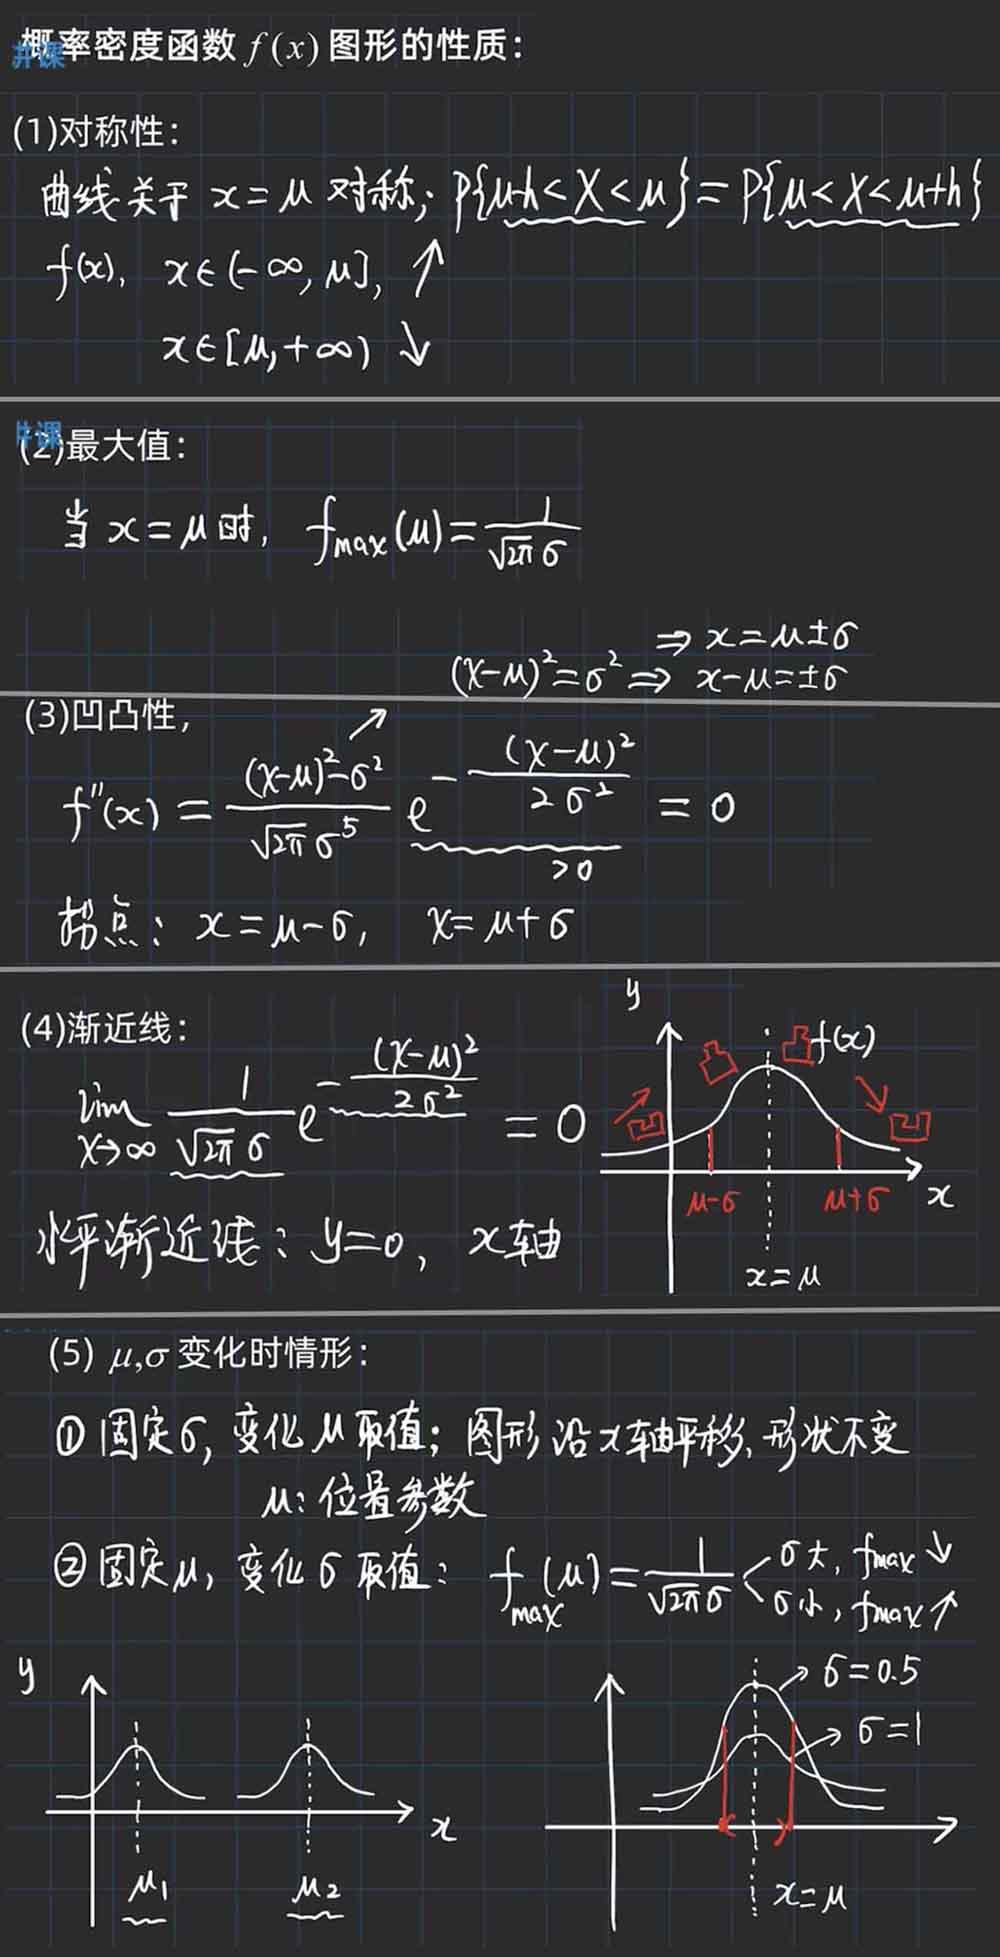 概率密度函数 f(x) 图形的性质：
(1)对称性：
曲线关于 x=μ 对称; P{μ-h<X<μ}=P{μ<X<μ+h}
f(x), x∈(-∞,μ], ↑
x∈[μ,+∞) ↓
(2)最大值：
当 x=μ时, fmax(μ)=1/(√2π σ)
⇒ x=μ±σ
(x-μ)²=σ² ⇒ x-μ=±σ
(3)凹凸性,
f''(x) = ((x-μ)²-σ²)/(√2π σ⁵) e^(-(x-μ)²/(2σ²)) = 0
>0
拐点: x=μ-σ, x=μ+σ
(4)渐近线：
lim x→∞ 1/(√2π σ) e^(-(x-μ)²/(2σ²)) = 0
水平渐近线: y=0, x轴
y
凸 凸 f(x)
凹 凹
μ-σ μ+σ x
x=μ
(5) μ,σ 变化时情形：
① 固定σ, 变化μ取值; 图形沿x轴平移, 形状不变
μ: 位置参数
② 固定μ, 变化σ取值: fmax(μ)=1/(√2π σ) < σ大, fmax↓
σ小, fmax↑
y
x
μ₁ μ₂
σ=0.5
σ=1
x=μ